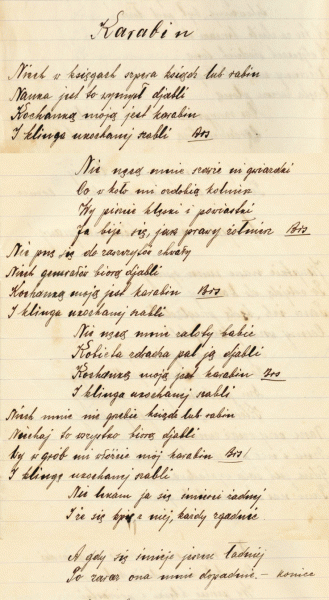 Karabin
Niech w księgach szpera ksiądz lub rabin
Nauka jest to wymysł djabli
Kochanką moją jest karabin
I klinga ukochanej szabli Bis
Nie nęcą mnie szarże ni gwiazdki
Co w koło mi ozdobią kołnierz
Wy piszcie klęski i powiastki
Ja biję się, jak prawy żołnierz Bis
Nie pnę się do zaszczytów chwały
Niech generałów biorą djabli
Kochanką moją jest karabin Bis
I klinga ukochanej szabli
Nie nęcą mnie zaloty babie
Kobieta zdradna pal ją djabli
Kochanką moją jest karabin Bis
I klinga ukochanej szabli
Niech mnie nie grzebie ksiądz lub rabin
Niechaj to wszystko biorą djabli
Wy w grób mi włóżcie mój karabin Bis
I klingę ukochanej szabli
Nie lękam ja się śmierci żadnej
I że się kpię z niej, każdy zgadnie
A gdy się śmieję jeszcze ładniej
To zaraz ona mnie dopadnie. – koniec